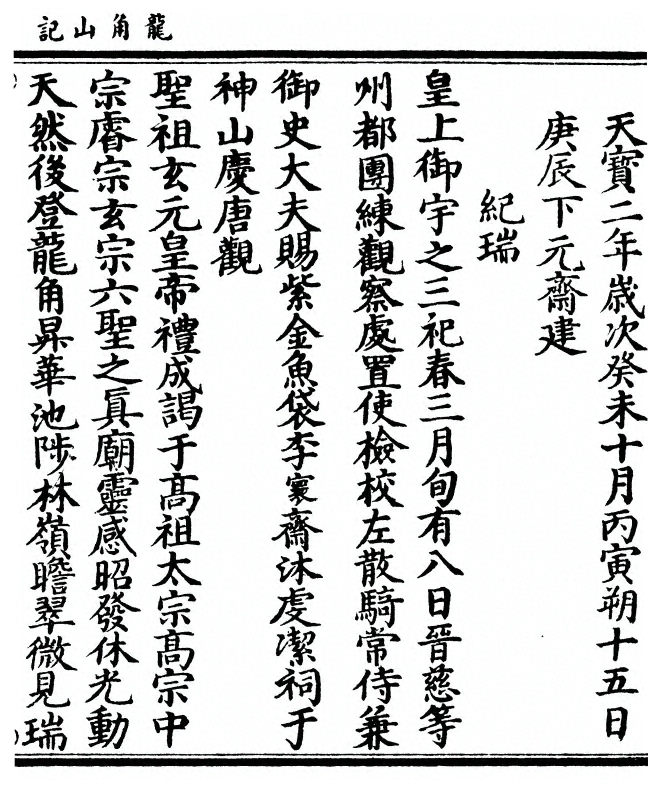 龍角山記
天寶二年歲次癸未十月丙寅朔十五日
庚辰下元齋建
紀瑞
皇上御宇之三祀春三月旬有八日晉慈等
州都團練觀察處置使檢校左散騎常侍兼
御史大夫賜紫金魚袋李寰齋沐虔潔祠于
神山慶唐觀
聖祖玄元皇帝禮成謁于高祖太宗高宗中
宗睿宗玄宗六聖之真廟靈感昭發休光動
天然後登龍角昇華池陟林嶺瞻翠微見瑞